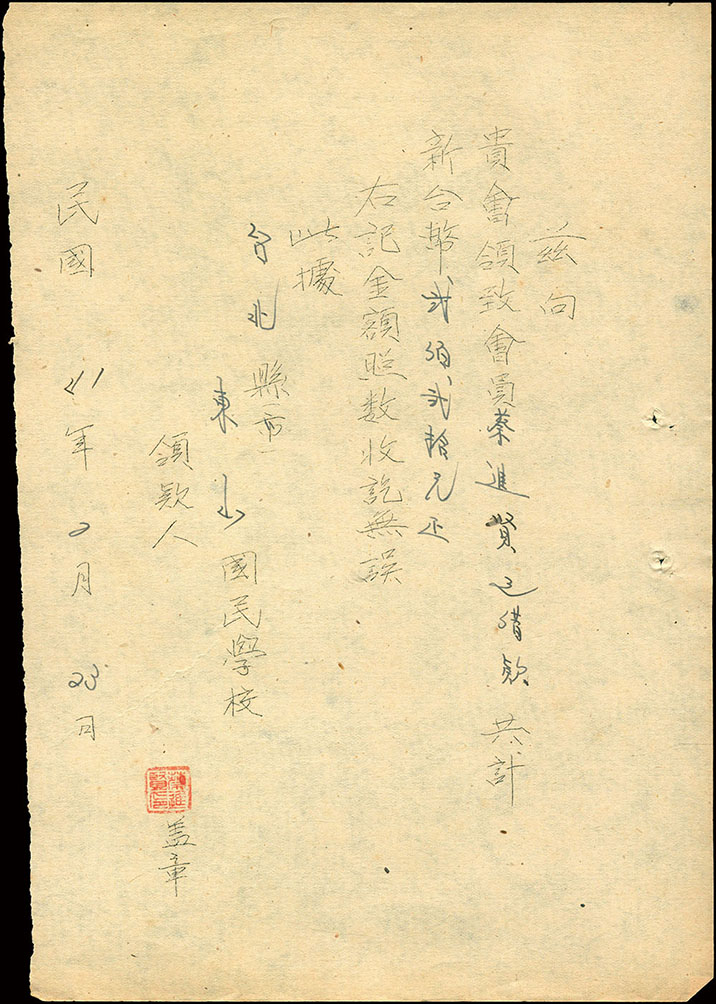 茲向
貴會領致會員蔡進賢之借款 共計
新台幣貳佰貳拾元正
右記金額照数收訖無誤
此據
台北縣市
東山國民學校
領款人
蔡進賢 盖章
民國 41年 2月 23日